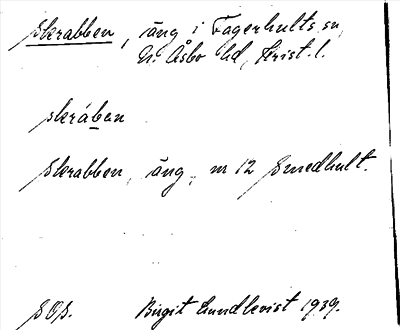 Skrabben, äng i Fagerhults sn,
N. Åsbo hd, Krist. l.
skráben
Skrabben, äng, nr 12 Smedhult.
SOS. Birgit Lundkvist 1939.